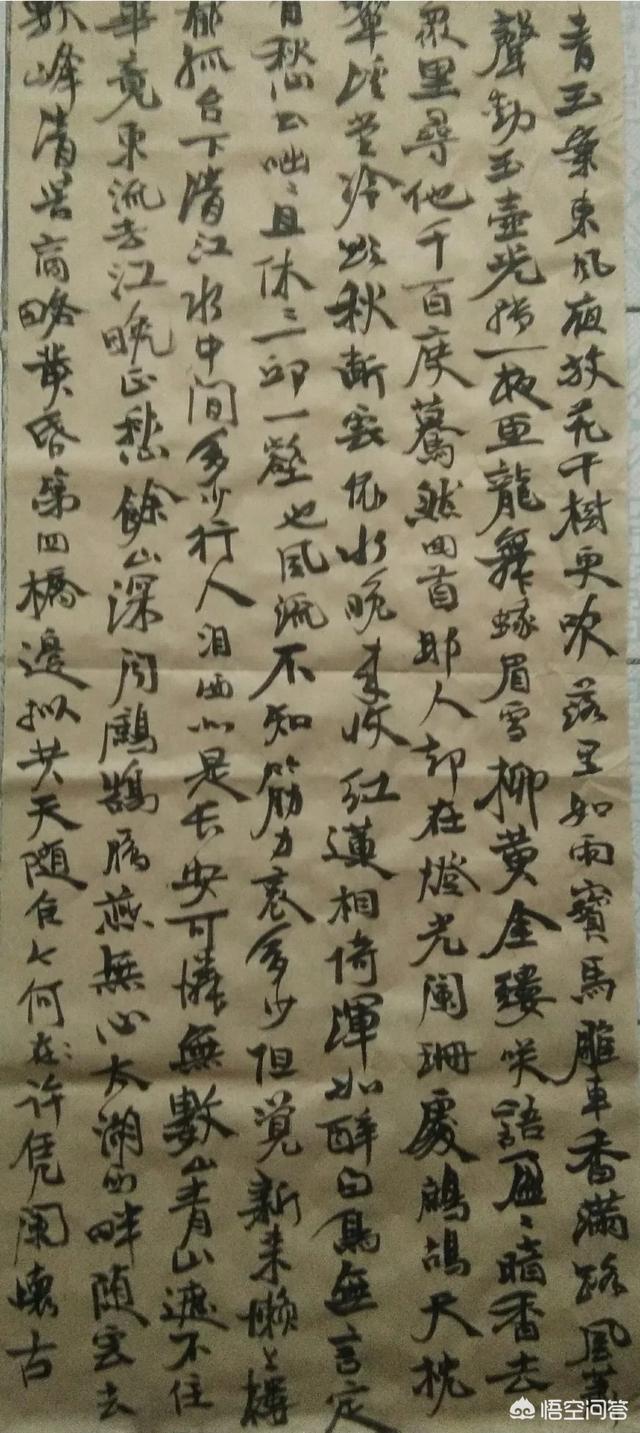 青玉案東風夜放花千樹更吹落星如雨寶馬雕車香滿路風簫
聲動玉壺光轉一夜魚龍舞蛾眉雪柳黄金縷笑語盈〻暗香去
眾里尋他千百度驀然回首那人却在燈光闌珊處鷓鴣天枕
簟溪堂冷欲秋斷雲依水晚來收紅蓮相倚渾如醉白鳥無言定
自愁書咄〻且休〻一邱一壑也風流不知筋力衰多少但覺新來懶上樓
郁孤台下清江水中間多少行人泪西北是长安可憐無數山青山遮不住
畢竟東流去江晚正愁餘山深聞鷓鴣鴈燕無心太湖西畔隨雲去
數峰清苦商略黄昏第四橋邊拟共天随住今何在許凭闌懷古
悟空问答